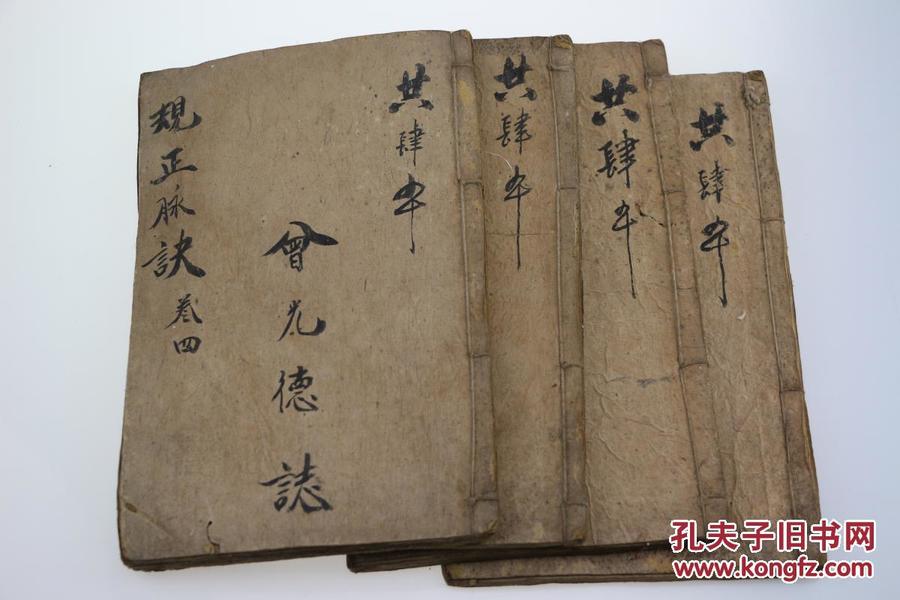 共肆本
曾光德誌
規正脉訣 卷四
共肆本
共肆本
共肆本
孔夫子旧书网
www.kongfz.com